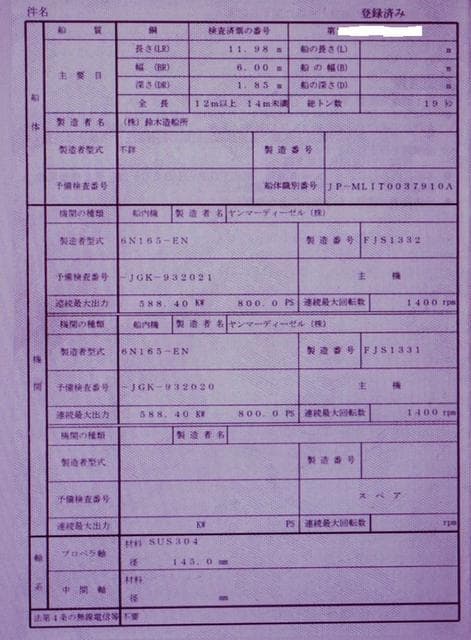 件名 登録済み
船体 船質 鋼 検査済票の番号 第
主要目 長さ(LR) 11.98 m 船の長さ(L) m
幅(BR) 6.00 m 船の幅(B) m
深さ(DR) 1.85 m 船の深さ(D) m
全長 12m以上 14m未満 総トン数 19 トン
製造者名 (株)鈴木造船所
製造者型式 不詳 製造番号
予備検査番号 船体識別番号 JP-MLIT0037910A
機関 機関の種類 船内機 製造者名 ヤンマーディーゼル(株)
製造者型式 6N165-EN 製造番号 FJS1332
予備検査番号 -JGK-932021 主機
連続最大出力 588.40 KW 800.0 PS 連続最大回転数 1400 rpm
機関の種類 船内機 製造者名 ヤンマーディーゼル(株)
製造者型式 6N165-EN 製造番号 FJS1331
予備検査番号 -JGK-932020 主機
連続最大出力 588.40 KW 800.0 PS 連続最大回転数 1400 rpm
機関の種類 製造者名
製造者型式 製造番号
予備検査番号 スペア
連続最大出力 KW PS 連続最大回転数 rpm
軸系 プロペラ軸 材料 SUS304
径 145.0 mm
中間軸 材料
径 mm
法第4条の無線電信等 不要